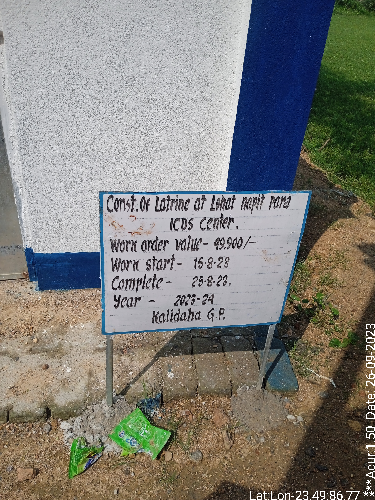 Const. Of Latrine at Lshat napit para
ICDS Center.
Work order value - 49,900/-
Work start - 16-8-23
Complete - 25-8-23.
Year - 2023-24
Kalidaha G.P.
Lat:Lon-23.49:86.77
***Acur:1.50 Date: 26-09-2023